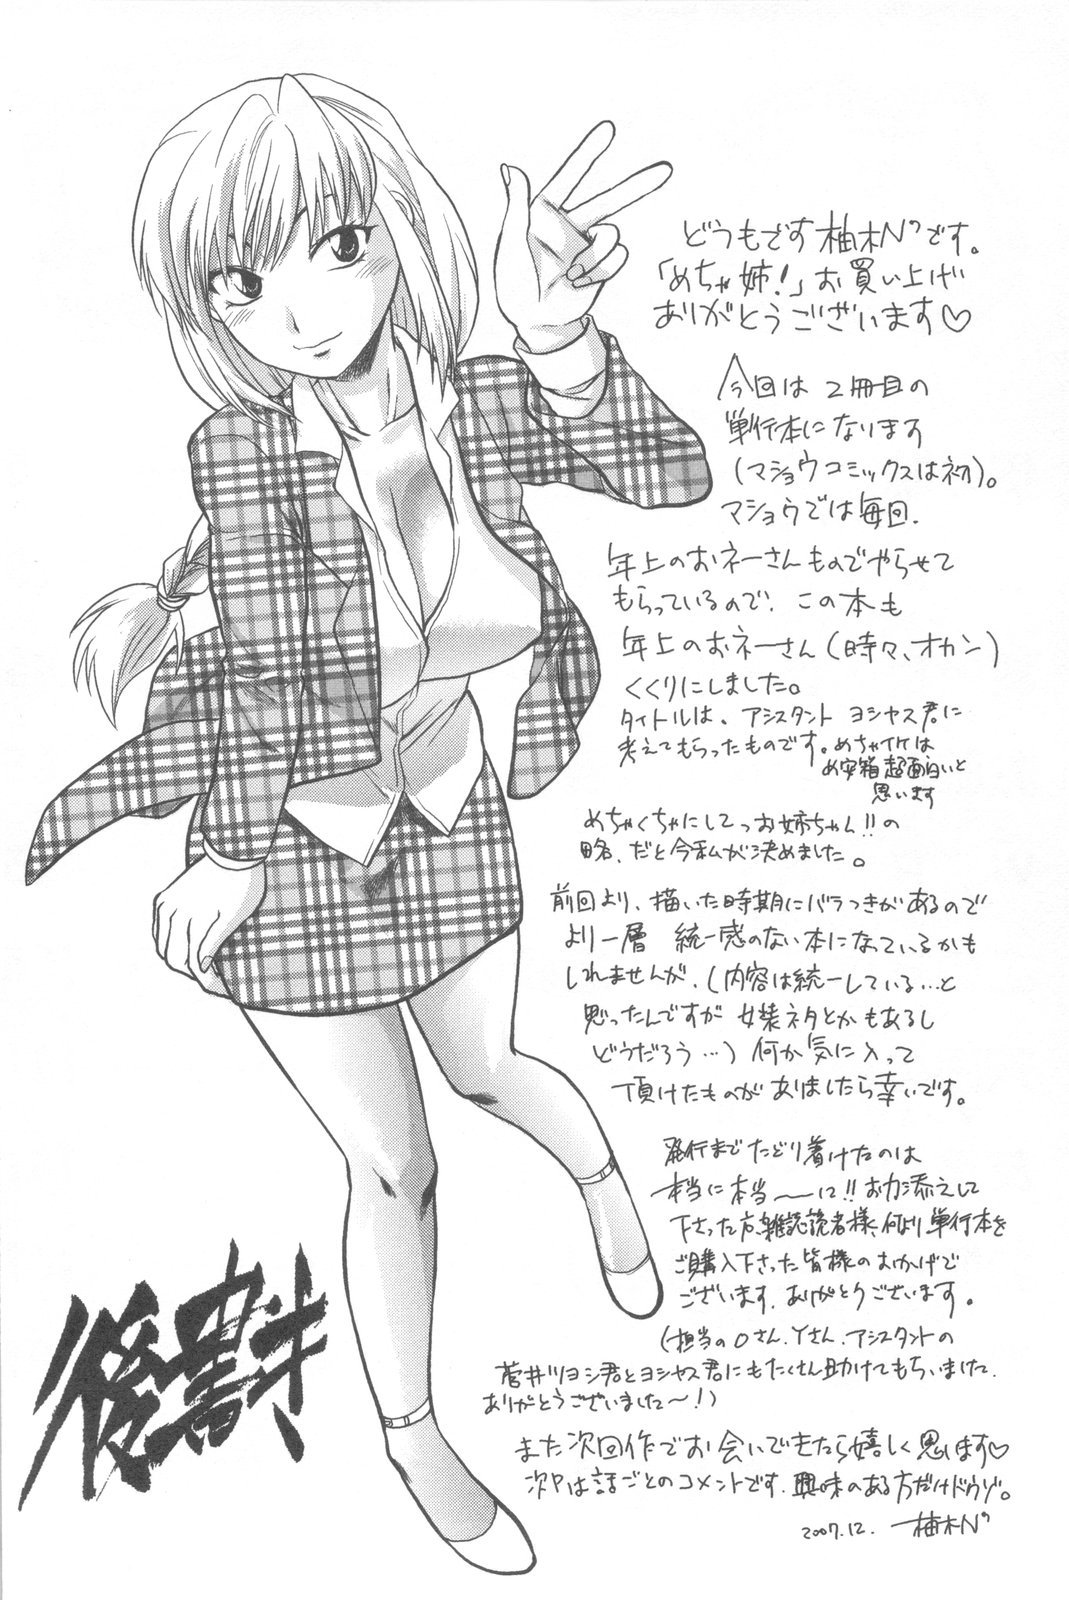 どうもです柚木N'です。
「めちゃ姉!」お買い上げ
ありがとうございます♡
今回は2冊目の
単行本になります
(マショウコミックスは初)。
マショウでは毎回、
年上のおネーさんものでやらせて
もらっているので、この本も
年上のおネーさん(時々、オカン)
くくりにしました。
タイトルは、アシスタント ヨシヤス君に
考えてもらったものです。めちゃイケは
め安箱超面白いと
思います
めちゃくちゃにしてっお姉ちゃん!!の
略、だと今私が決めました。
前回より、描いた時期にバラつきがあるので
より一層 統一感のない本になっているかも
しれませんが、(内容は統一している…と
思ったんですが 女装ネタとかもあるし
どうだろう…) 何か気に入って
頂けたものがありましたら幸いです。
発行までたどり着けたのは
本当に本当〜に!!お力添えして
下さった方、雑誌読者様、何より単行本を
ご購入下さった皆様のおかげで
ございます。ありがとうございます。
(担当のOさん、Yさん、アシスタントの
菅井ツヨシ君とヨシヤス君にもたくさん助けてもらいました。
ありがとうございました〜!)
また次回作でお会いできたら嬉しく思います♡
次Pは話ごとのコメントです、興味のある方だけドウゾ。
2007.12. 柚木N'
後書き